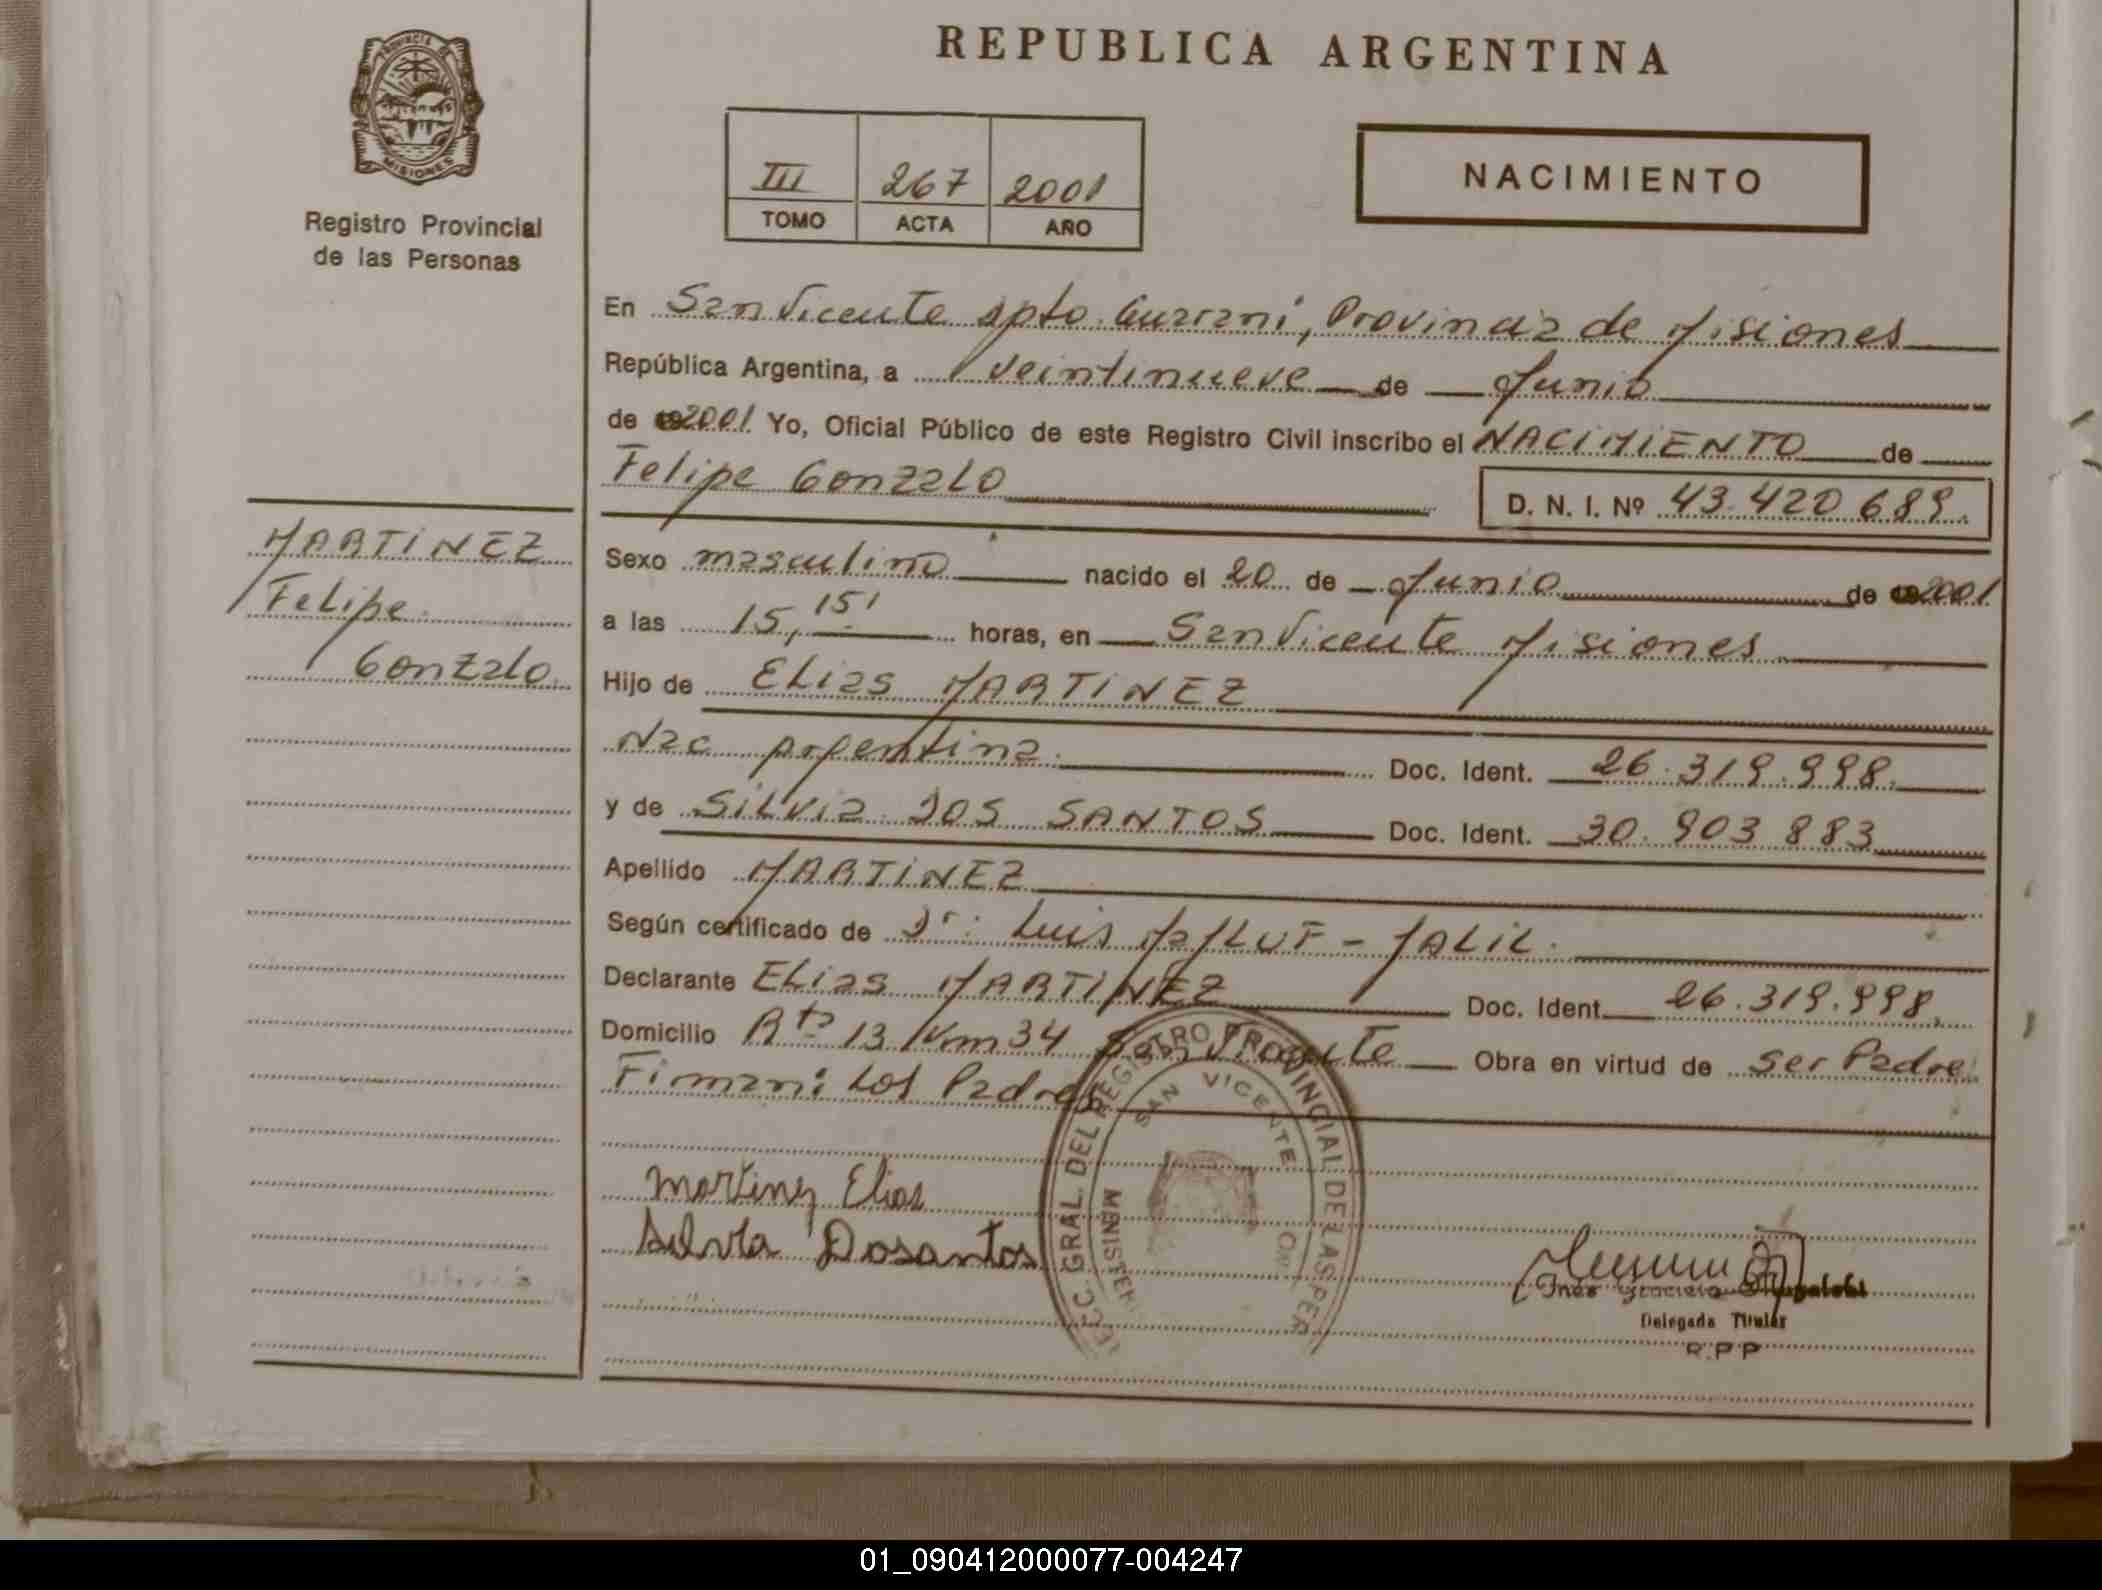 REPUBLICA ARGENTINA
PROVINCIA DE
MISIONES
Registro Provincial
de las Personas
III 267 2001
TOMO ACTA AÑO
NACIMIENTO
En San Vicente Dpto. Guarani, Provincia de Misiones
República Argentina, a veintinueve de Junio
de 2001 Yo, Oficial Público de este Registro Civil inscribo el NACIMIENTO de
Felipe Gonzalo
D. N. I. Nº 43.420.689.
MARTINEZ
Felipe
Gonzalo
Sexo masculino nacido el 20 de Junio de 2001
a las 15,15' horas, en San Vicente Misiones
Hijo de Elias MARTINEZ
Nac argentina. Doc. Ident. 26.319.998.
y de Silvia DOS SANTOS Doc. Ident. 30.903.883
Apellido MARTINEZ
Según certificado de Dr: Luis JALIL.
Declarante Elias MARTINEZ Doc. Ident. 26.319.998.
Domicilio Rta 13 Km 34 San Vicente Obra en virtud de ser Padre
Firman: Los Padres
GRAL. DEL REGISTRO PROVINCIAL DE LAS PER
SAN VICENTE
MINISTER
Martinez Elias
Silvia Dosantos
Ines Graciela
Delegada Titular
R.P.P
01_090412000077-004247